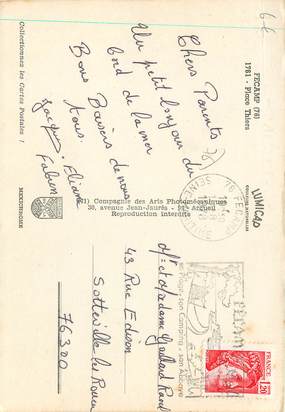 FECAMP (76)
1781 - Place Thiers
Chers Parents
Un petit bonjour du
bord de la mer
Baisers de nous
tous.
Bons
Jacques. Eliane
Fabien
Collectionnez les Cartes Postales !
MEXICHROME
Compagnie des Arts Photomécaniques
30, avenue Jean-Jaurès - 94 - Arcueil
Reproduction interdite
LUMICAP
76 FECAMP
SEINE
son Camping - son Abbaye
FRANCE
1,20
Mr et Madame Gaillard Raoul
43 Rue Edison
Sotteville les Rouen
76300